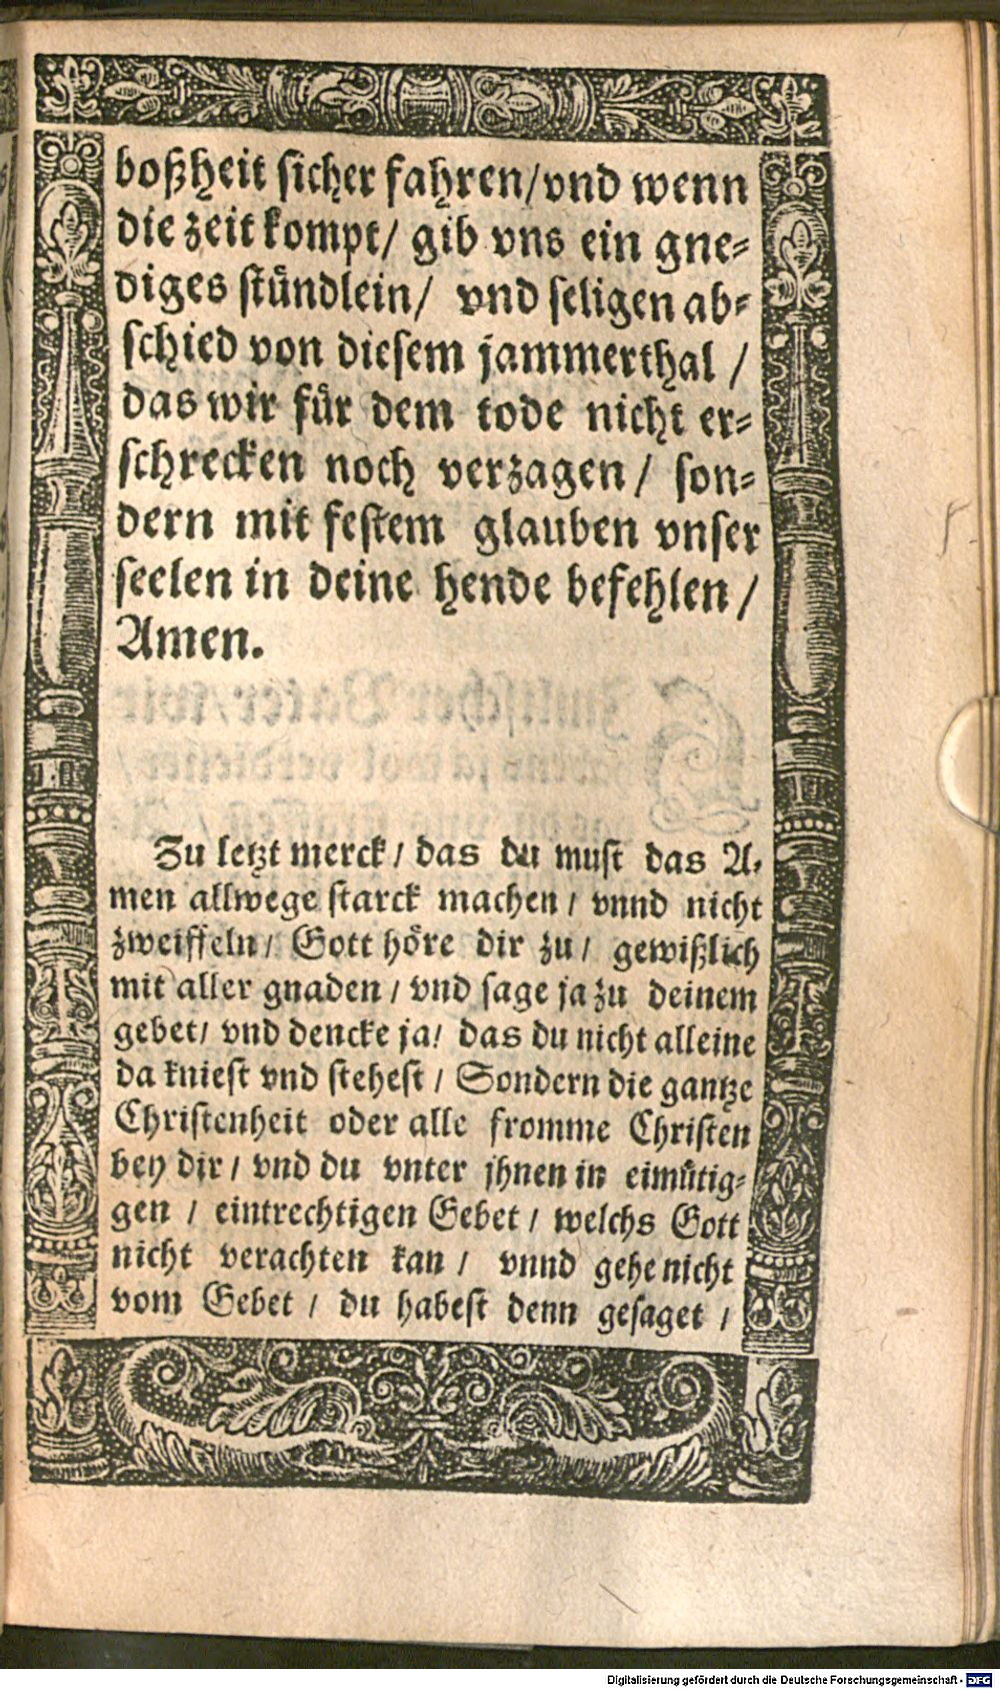 boßheit sicher fahren/vnd wenn
die zeit kompt/ gib vns ein gne⸗
diges stuͤndlein/ vnd seligen ab⸗
schied von diesem jammerthal /
das wir fuͤr dem tode nicht er⸗
schrecken noch verzagen/ son⸗
dern mit festem glauben vnser
seelen in deine hende befehlen/
Amen.
Zu letzt merck/ das du must das A⸗
men allwege starck machen/ vnnd nicht
zweiffeln/ Gott hoͤre dir zu/ gewißlich
mit aller gnaden/ vnd sage ja zu deinem
gebet/ vnd dencke ja/ das du nicht alleine
da kniest vnd stehest/ Sondern die gantze
Christenheit oder alle fromme Christen
bey dir/ vnd du vnter jhnen in eimuͤtig⸗
gen / eintrechtigen Gebet/ welchs Gott
nicht verachten kan/ vnnd gehe nicht
vom Gebet/ du habest denn gesaget /
Digitalisierung gefördert durch die Deutsche Forschungsgemeinschaft - DFG